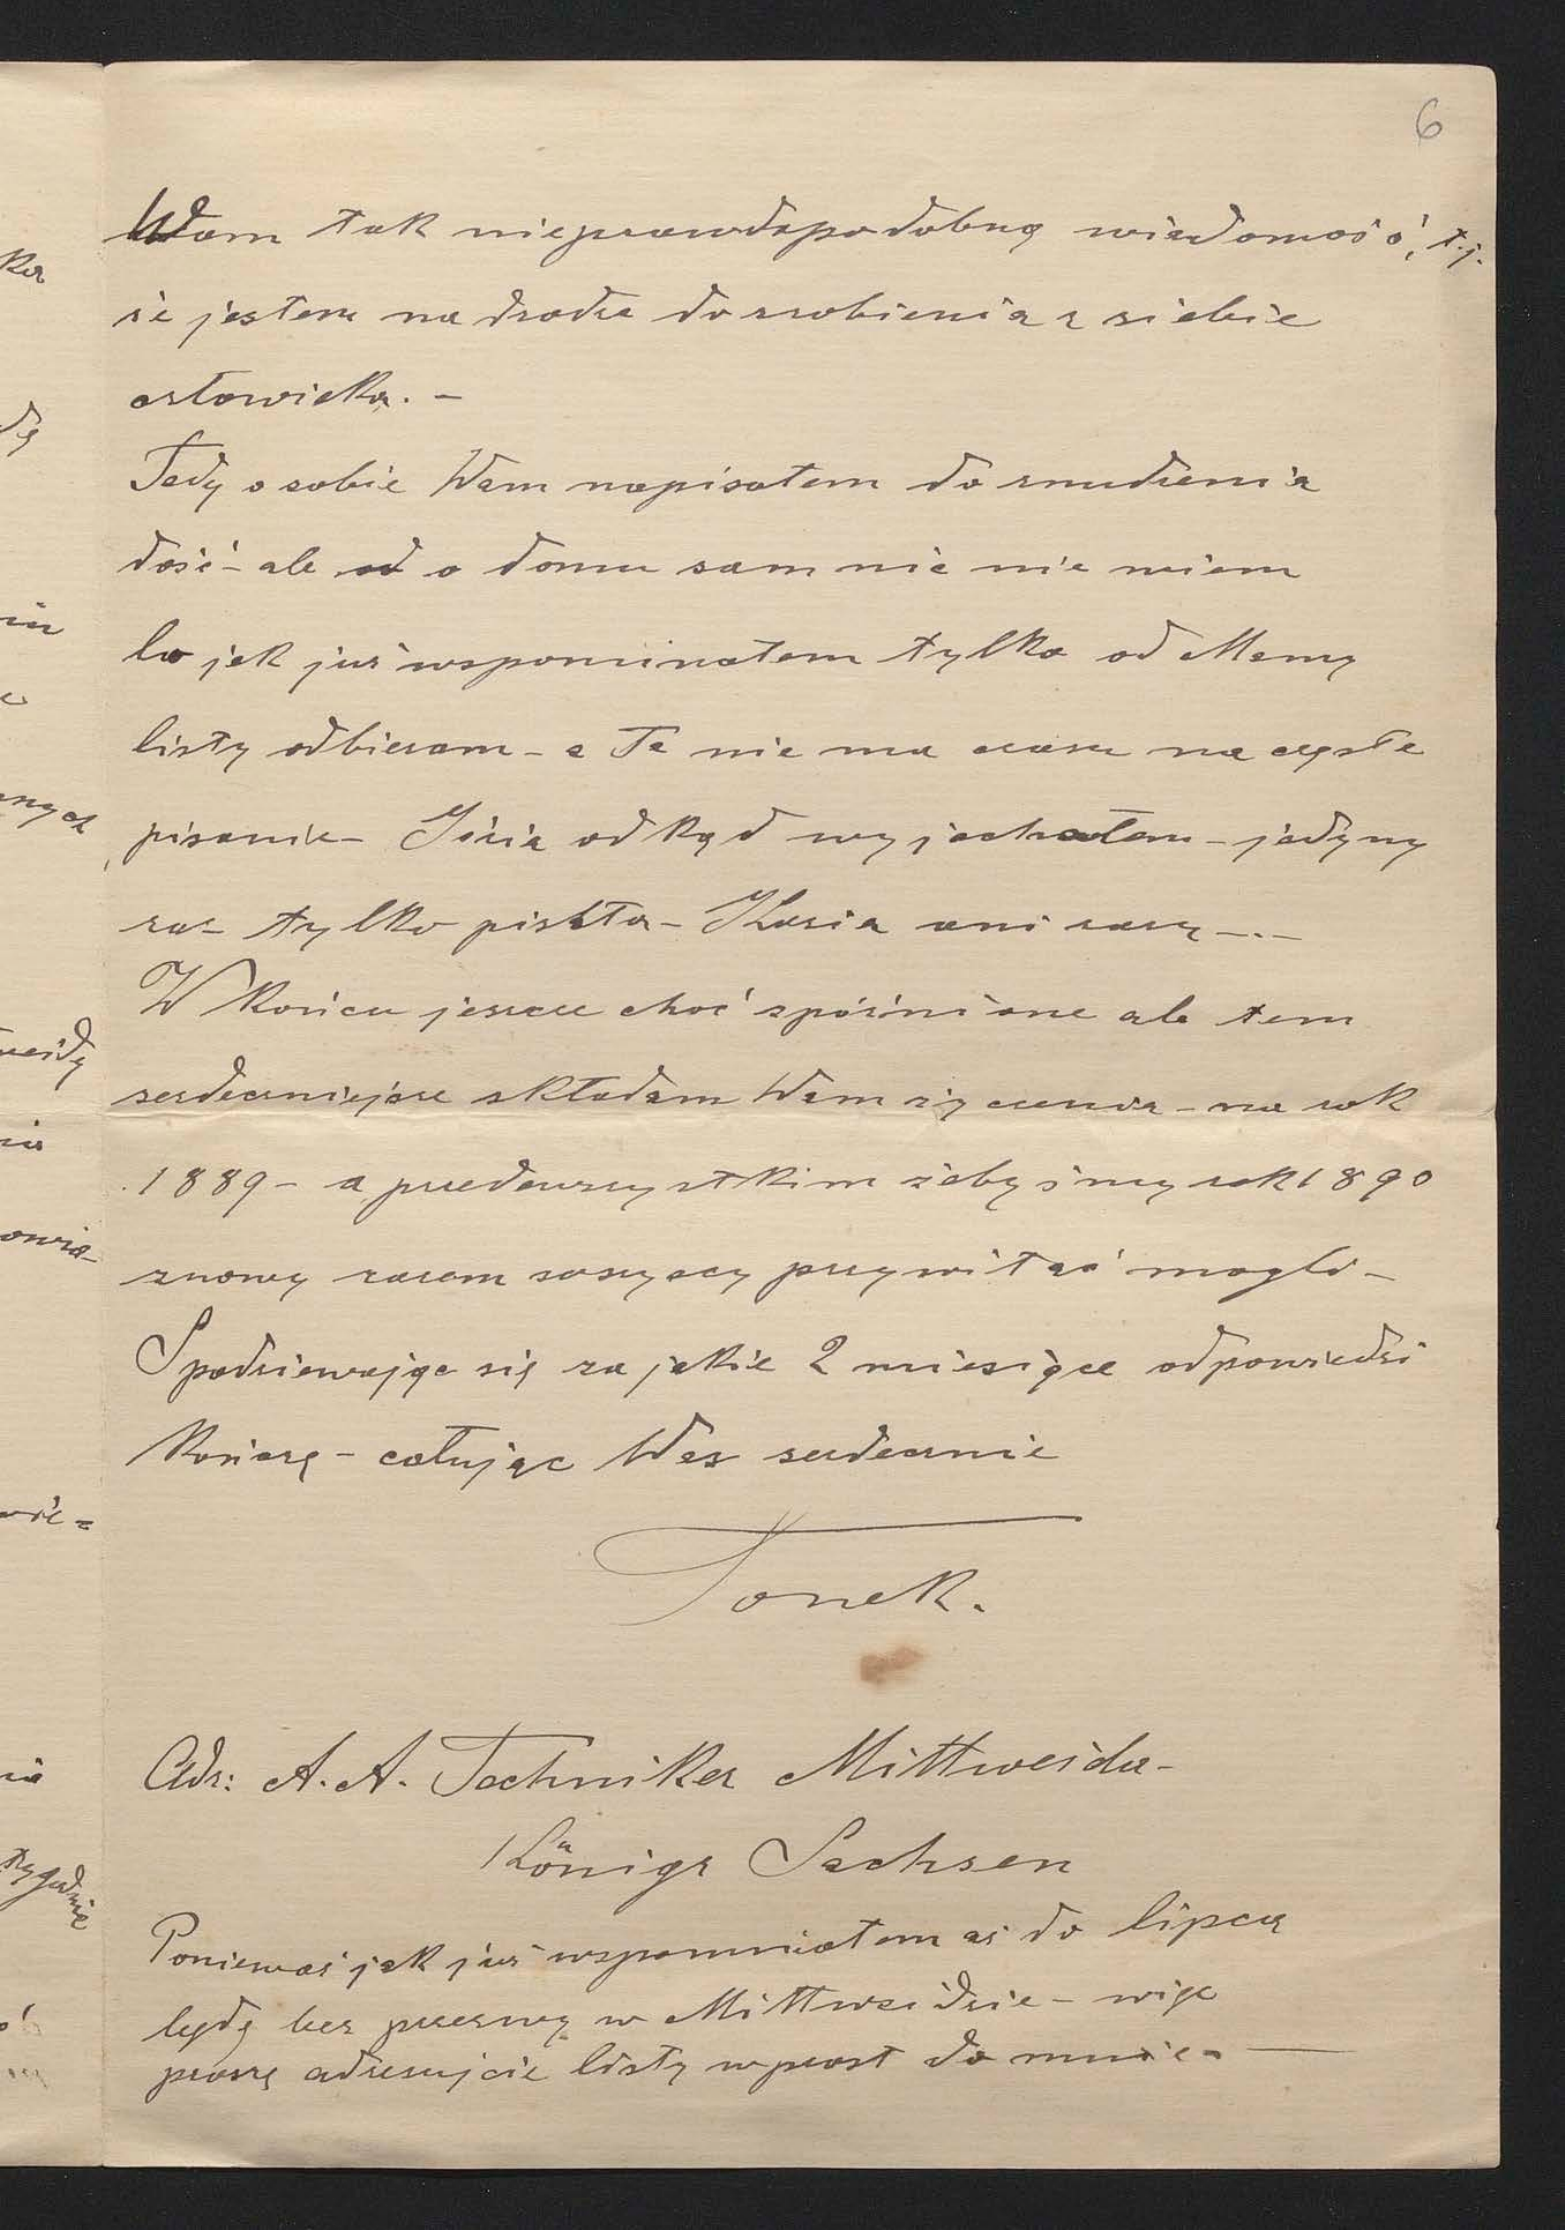 6
Wam tak nieprawdopodobną wiadomość, t.j.
że jestem na drodze do zrobienia z siebie
człowieka. –
Tedy o sobie Wam napisałem do znudzenia
dość – ale o domu sam nic nie wiem
bo jak już wspominałem tylko od Mamy
listy odbieram – a Ta nie ma czasu na częste
pisanie – Józia odkąd wyjechałem – jedyny
raz tylko pisała – Kazia ani razu –.–
W końcu jeszcze choć spóźnione ale tem
serdeczniejsze składam Wam życzenia – na rok
1889 – a przedewszystkim żebyśmy rok 1890
znowu razem wszyscy przywitać mogli –
Spodziewając się za jakie 2 miesiące odpowiedzi
kończę – całując Was serdecznie
Tonek.
Adr: A. A. Techniker Mittweida –
Königr Sachsen
Ponieważ jak już wspomniałem aż do lipca
będę bez przerwy w Mittweidzie – więc
proszę adresujcie listy wprost do mnie. —